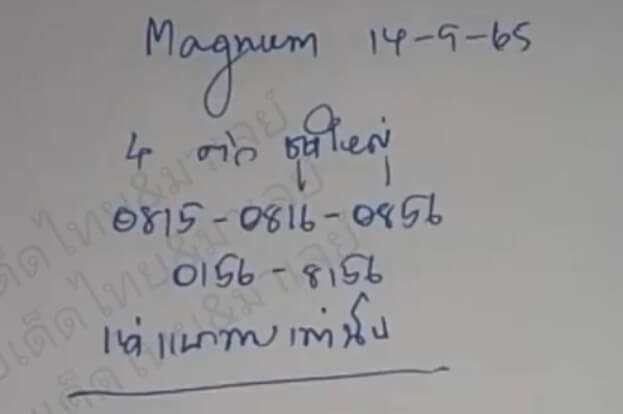 Magnum 14-9-65
4 ตัว ชุดใหญ่
0815-0816-0856
0156-8156
แค่แนวทางเท่านั้น